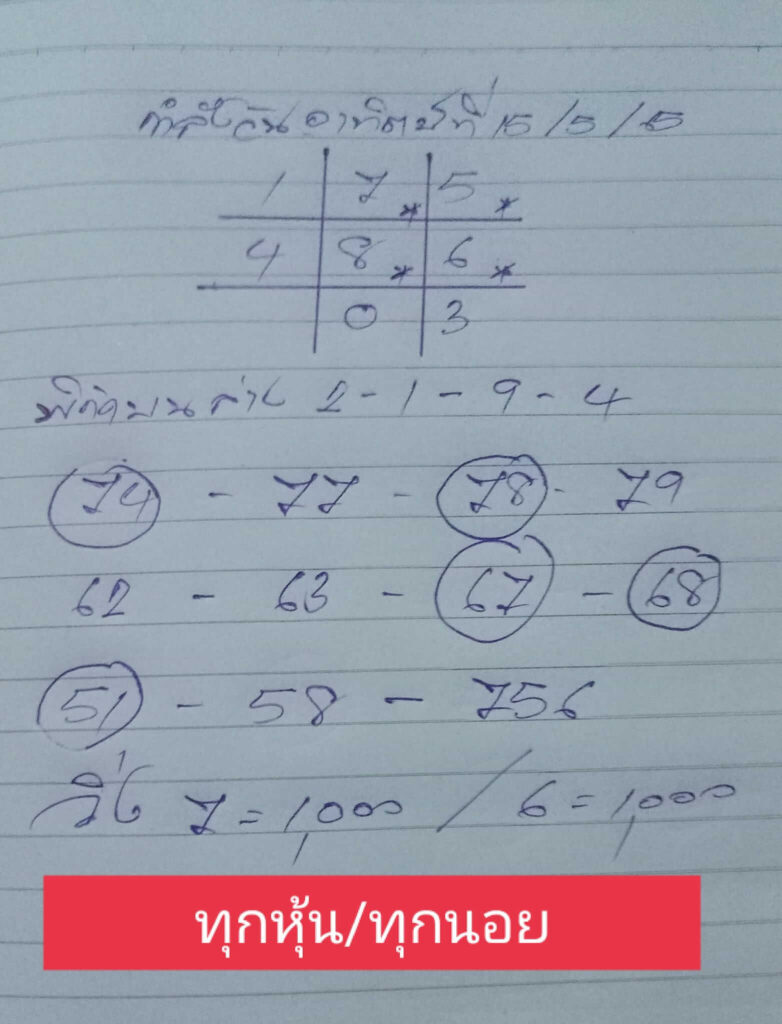 กำลังวันอาทิตย์ที่ 15/5/65
1 7* 5*
4 8* 6*
0 3
พิกัดบนล่าง 2-1-9-4
74 - 77 - 78 - 79
62 - 63 - 67 - 68
51 - 58 - 756
วิ่ง 7 = 1,000 / 6 = 1,000
ทุกหุ้น/ทุกนอย